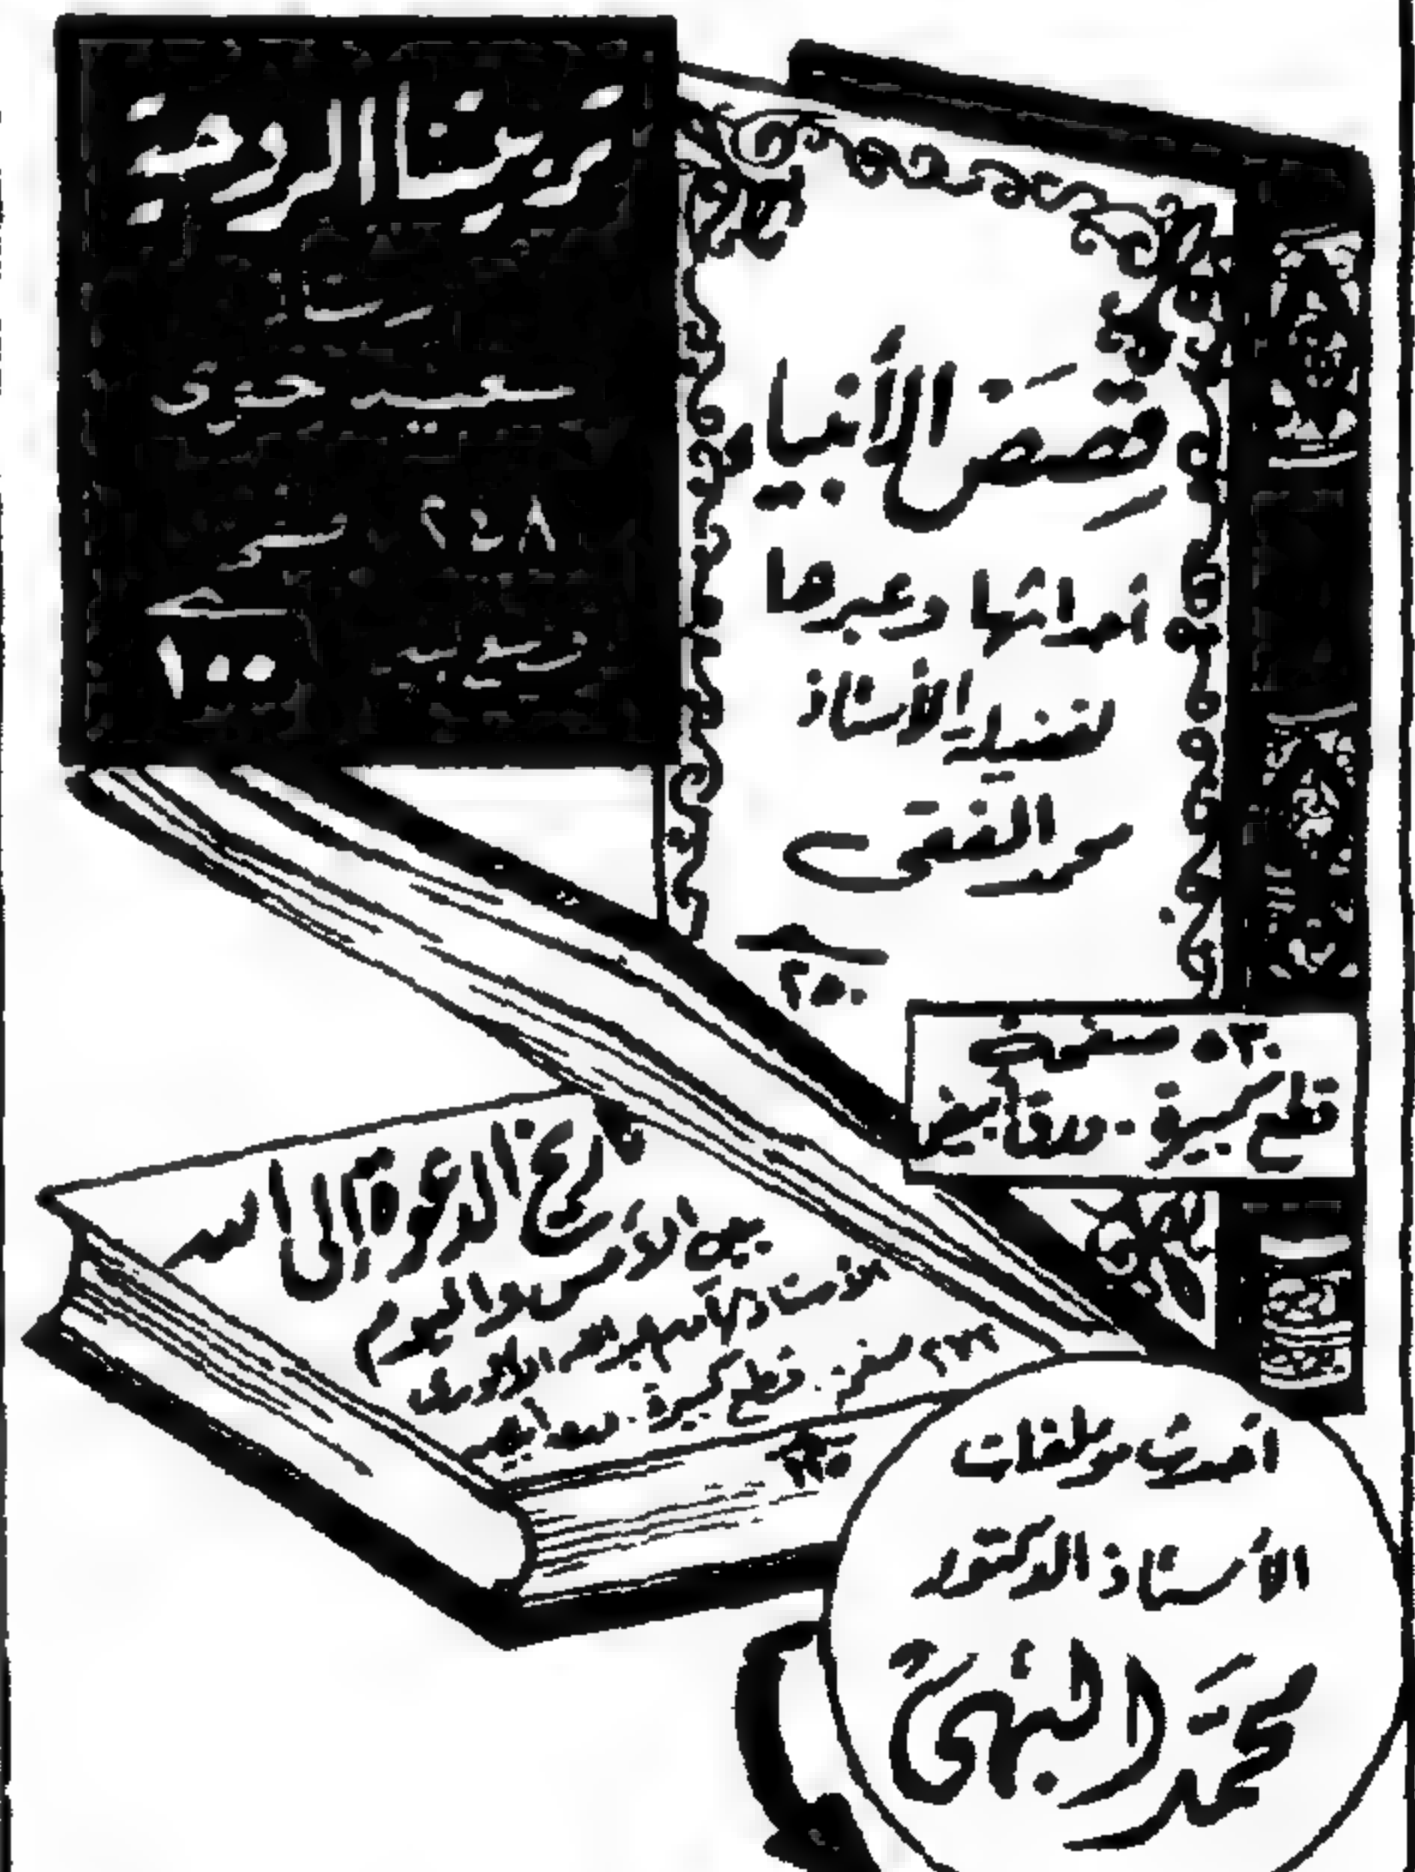 تربيتنا الروحية
سعيد حوى
٢٤٨
١٠٠
قصص الأنبياء
أحداثها وعبرها
لفضيلة الأستاذ
محمد الفقي
٢٥٠
٥٣٠ صفحة
قطع كبيرة - ورق أبيض
تاريخ الدعوة إلى الله
بين الأمس واليوم
الأستاذ آدم عبد الله الألوري
٢٧٢ صفحة . قطع كبيرة . ورق أبيض
أحدث مؤلفات
الأستاذ الدكتور
محمد البهي